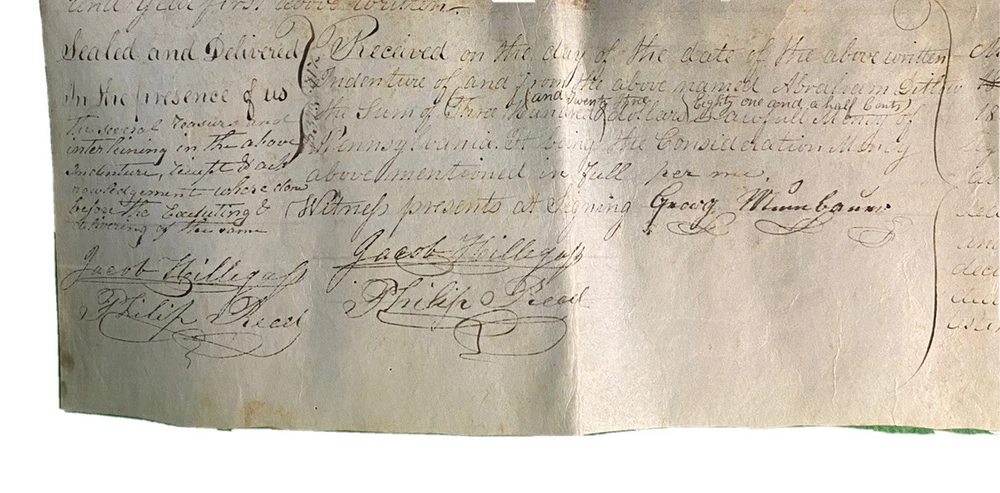 and year first above written.
Sealed and Delivered
In the presence of us
the several rasures and
interlining in the above
Indenture, receipt & ack
nowledgement where done
before the Executing &
delivering of the same
Jacob Hillegass
Philip Reed
Received on the day of the date of the above written
Indenture of and from the above named Abraham
and twenty three
Eighty one and a half Cents
the Sum of Two hundred dollars Lawfull Money of
Pennsylvania. It being the Consideration Money
above mentioned in full per me.
Witness presents at Signing Georg Mumbauer
Jacob Hillegass
Philip Reed